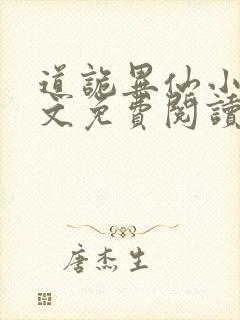 道詭異仙小
文免費閱讀
唐杰生